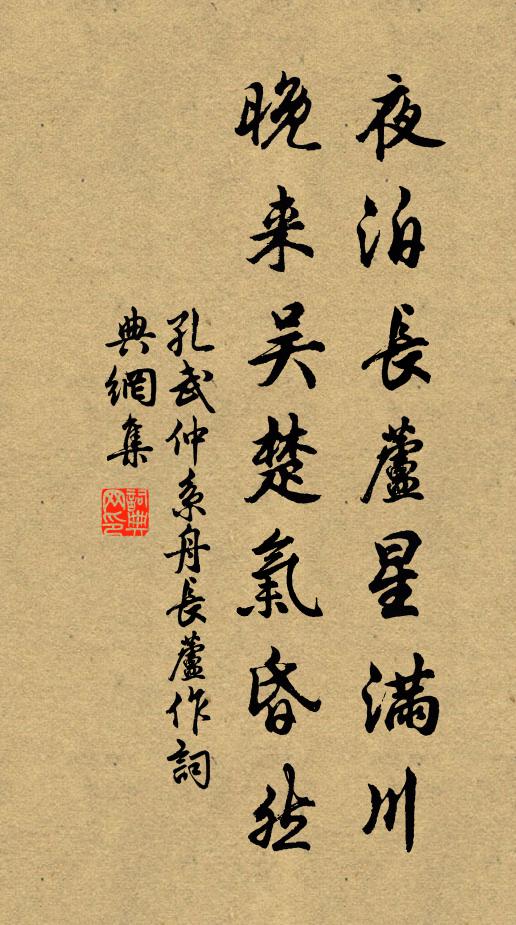 夜泊長蘆星滿川
晚来吴楚氣昏然
孔武仲系舟長蘆作詞
典網集
詞典网印